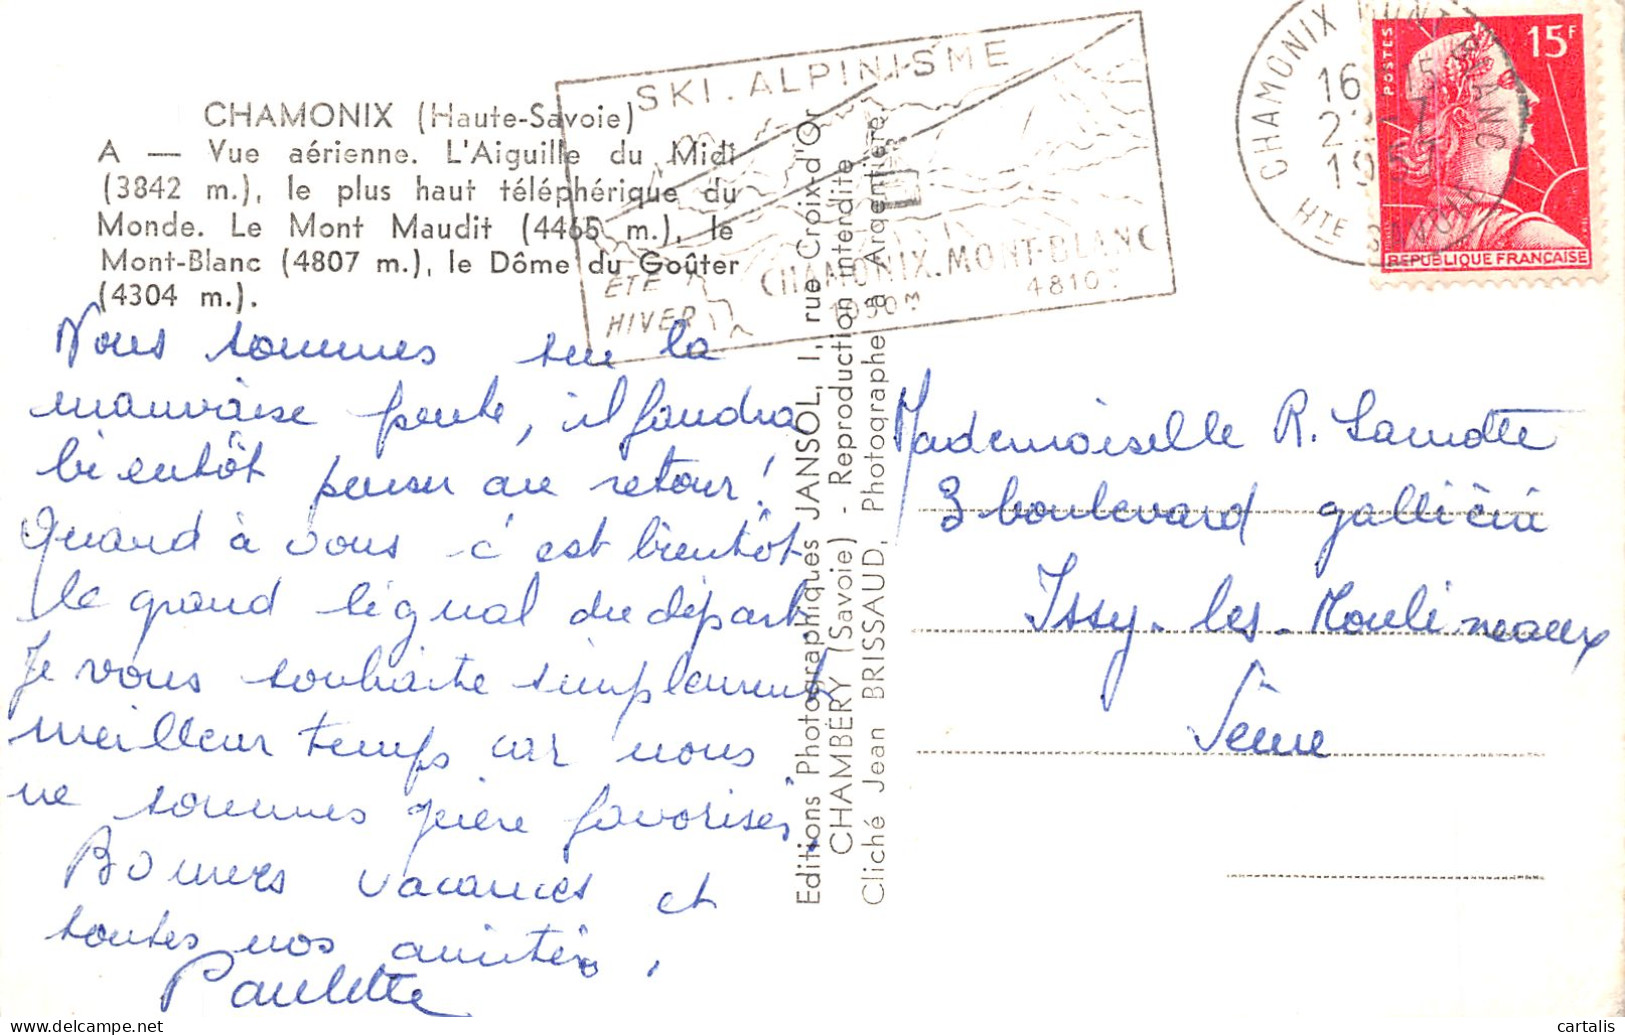 CHAMONIX (Haute-Savoie)
A — Vue aérienne. L'Aiguille du Midi
(3842 m.), le plus haut téléphérique du
Monde. Le Mont Maudit (4465 m.), le
Mont-Blanc (4807 m.), le Dôme du Goûter
(4304 m.).
SKI. ALPINISME
ÉTÉ
HIVER
CHAMONIX.MONT-BLANC
1050M 4810M
CHAMONIX MONT BLANC
HTE SAVOIE
16
2
19
POSTES
15F
REPUBLIQUE FRANCAISE
Nous sommes sur la
mauvaise pente, il faudra
bientôt penser au retour !
Quand à vous c'est bientôt
le grand signal du départ
Je vous souhaite simplement
meilleur temps car nous
ne sommes guère favorisés,
Bonnes vacances et
toutes nos amitiés,
Paulette
Editions Photographiques JANSOL, 1, rue Croix-d'Or
CHAMBÉRY (Savoie) - Reproduction interdite
Cliché Jean BRISSAUD, Photographe à Argentière
Mademoiselle R. Lamotte
3 boulevard galliéni
Issy-les-Moulineaux
Seine
cartalis
delcampe.net